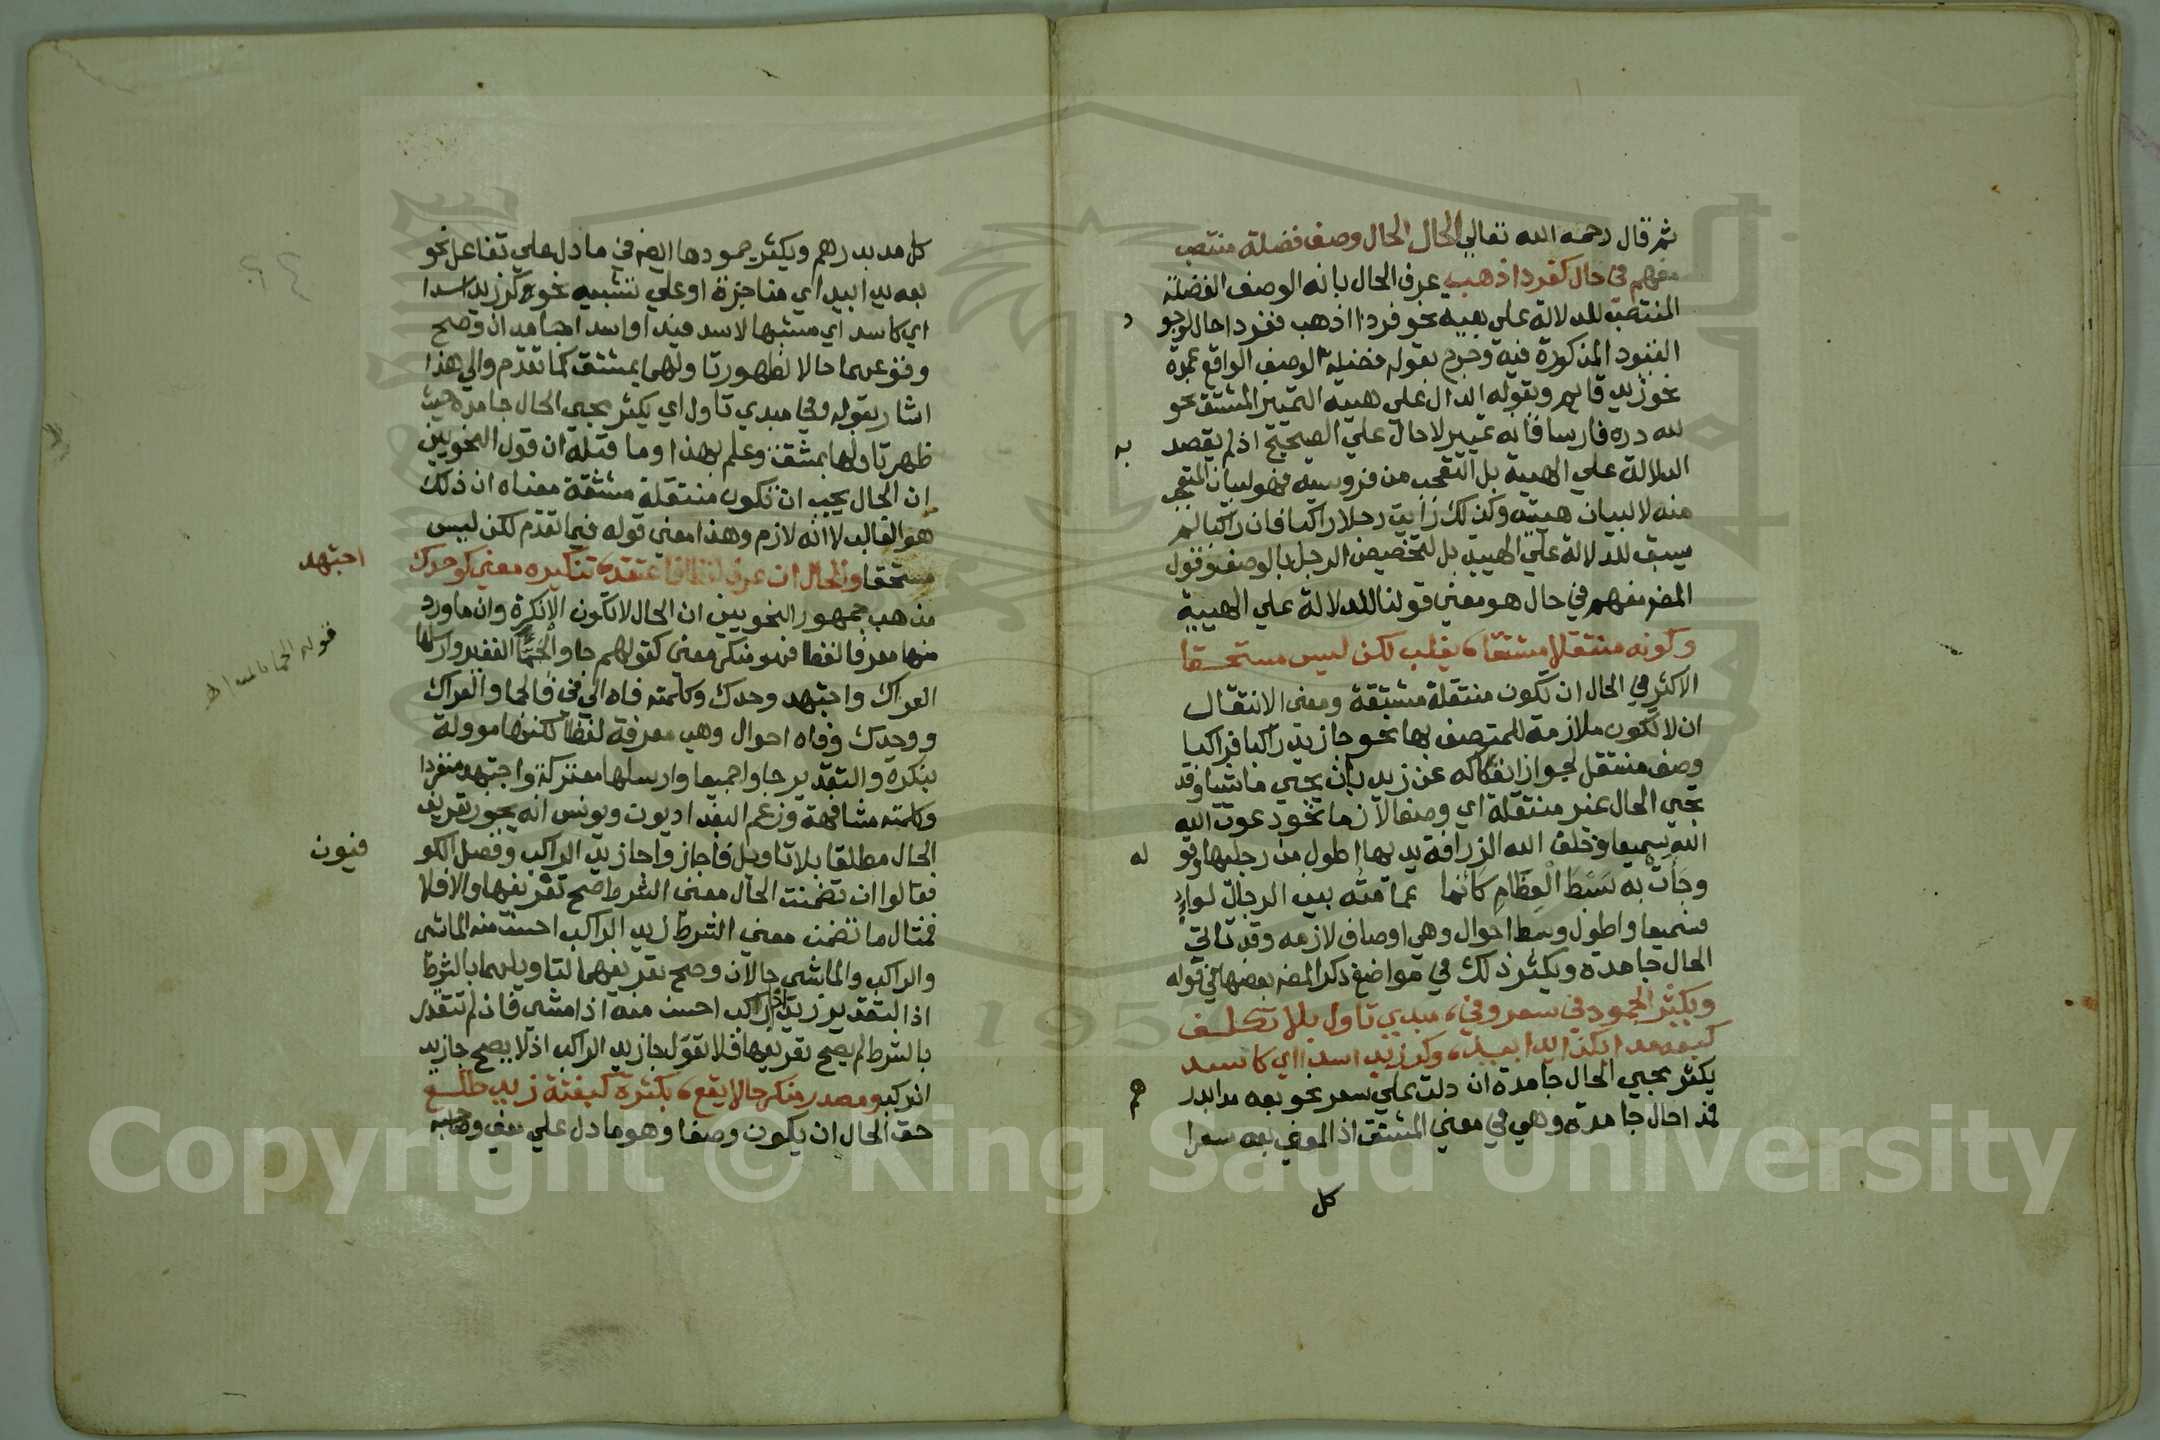 ثم قال رحمه الله تعالي الحال الحال وصف فضلة منتصب
مفهم في حال كفردا اذهب عرف الحال بانه الوصف الفضلة
المنتصب للدلالة علي هيية نحو فردا اذهب ففردا حال لوجو
د
القيود المذكورة فيه وخرج بقوله فضلة الوصف الواقع عمدة
نحو زيد قايم وبقوله الدال علي هيية التمييز المشتق نحو
لله دره فارسا فانه تمييز لا حال علي الصحيح اذ لم يقصد
به
الدلالة علي الهيية بل التعجب من فروسيته فهو لبيان المتعجب
منه لا لبيان هيته وكذلك رايت رجلا راكبا فان راكبا لم
يسق للدلالة علي الهيية بل لتخصيص الرجل بالوصف وقول
المض مفهم في حال هو معني قولنا للدلالة علي الهيية
وكونه منتقلا مشتقا، يغلب لكن ليس مستحقا
الاكثر في الحال ان تكون منتقلة مشتقة ومعني الانتقال
ان لا تكون ملازمة للمتصف بها نحو جا زيد راكبا فراكبا
وصف منتقل لجواز انفكاكه عن زيد بان يجي ماشيا وقد
تجي الحال غير منتقلة اي وصفا لازما نحو دعوت الله
الله سميعا وخلق الله الزرافة يديها اطول من رجليها وقو
له
وجات به سبط العظام كانما عمامته بين الرجال لواء
فسميعا واطول وسبط احوال وهي اوصاف لازمه وقد تاتي
الحال جامدة ويكثر ذلك في مواضع ذكر المض بعضها في قوله
ويكثر الجمود في سعر وفي، مبدي تاول بلا تكلف
كبعه مدا بكذا يدا بيد، وكر زيد اسدا اي كاسد
يكثر مجي الحال جامدة ان دلت علي سعر نحو بعه مدا بدر
هم
فمدا حال جامدة وهي في معني المشتق اذ المعني بعه سعرا
كل
كل مد بدرهم ويكثر جمودها ايضا في ما دل علي تفاعل نحو
بعه يدا بيد اي مناجزة او علي تشبيه نحو كر زيد اسدا
اي كاسد اي مشبها لاسد فيدا واسدا جامدان وصح
وقوعهما حالا لظهور تاولهما بمشتق كما تقدم والي هذا
اشار بقوله وفي مبدي تاول اي يكثر مجي الحال جامدة حيث
ظهر تاولها بمشتق وعلم بهذا وما قبله ان قول النحويين
ان الحال يجب ان تكون منتقلة مشتقة معناه ان ذلك
هو الغالب لا انه لازم وهذا معني قوله فيما تقدم لكن ليس
مستحقا والحال ان عرف لفظا فاعتقد، تنكيره معني كوحدك
اجتهد
مذهب جمهور النحويين ان الحال لا تكون الا نكرة وان ما ورد
منها معرفا لفظا فهو منكر معني كقولهم جاوا الجما الغفير وارسلها
العراك واجتهد وحدك وكلمته فاه الي في فالجما والعراك
ووحدك وفاه احوال وهي معرفة لفظا لكنها موولة
بنكرة والتقدير جاوا جميعا وارسلها معتركة واجتهد منفردا
وكلمته مشافهة وزعم البغداديون ويونس انه يجوز تعريف
الحال مطلقا بلا تاويل فاجازوا جا زيد الراكب وفصل الكو
فيون
فقالوا ان تضمنت الحال معني الشرط صح تعريفها والا فلا
فمثال ما تضمن معني الشرط زيد الراكب احسن منه الماشي
والراكب والماشي حالان وصح تعريفهما لتاويلهما بالشرط
اذ التقدير زيد اذا راكب احسن منه اذا مشي فاذ لم تتقدر
بالشرط لم يصح تعريفها فلا تقول جا زيد الراكب اذ لا يصح جا زيد
ان ركب ومصدر منكر حالا يقع، بكثرة كبغتة زيد طلع
حق الحال ان يكون وصفا وهو ما دل علي معني وصاحبه